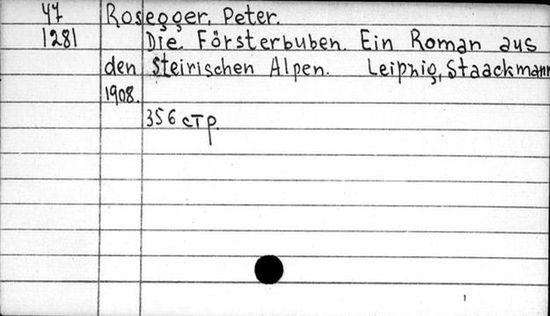 47 Rosegger, Peter.
1281 Die Försterbuben. Ein Roman aus
den Steirischen Alpen. Leipzig, Staackmann
1908.
356 стр.
1